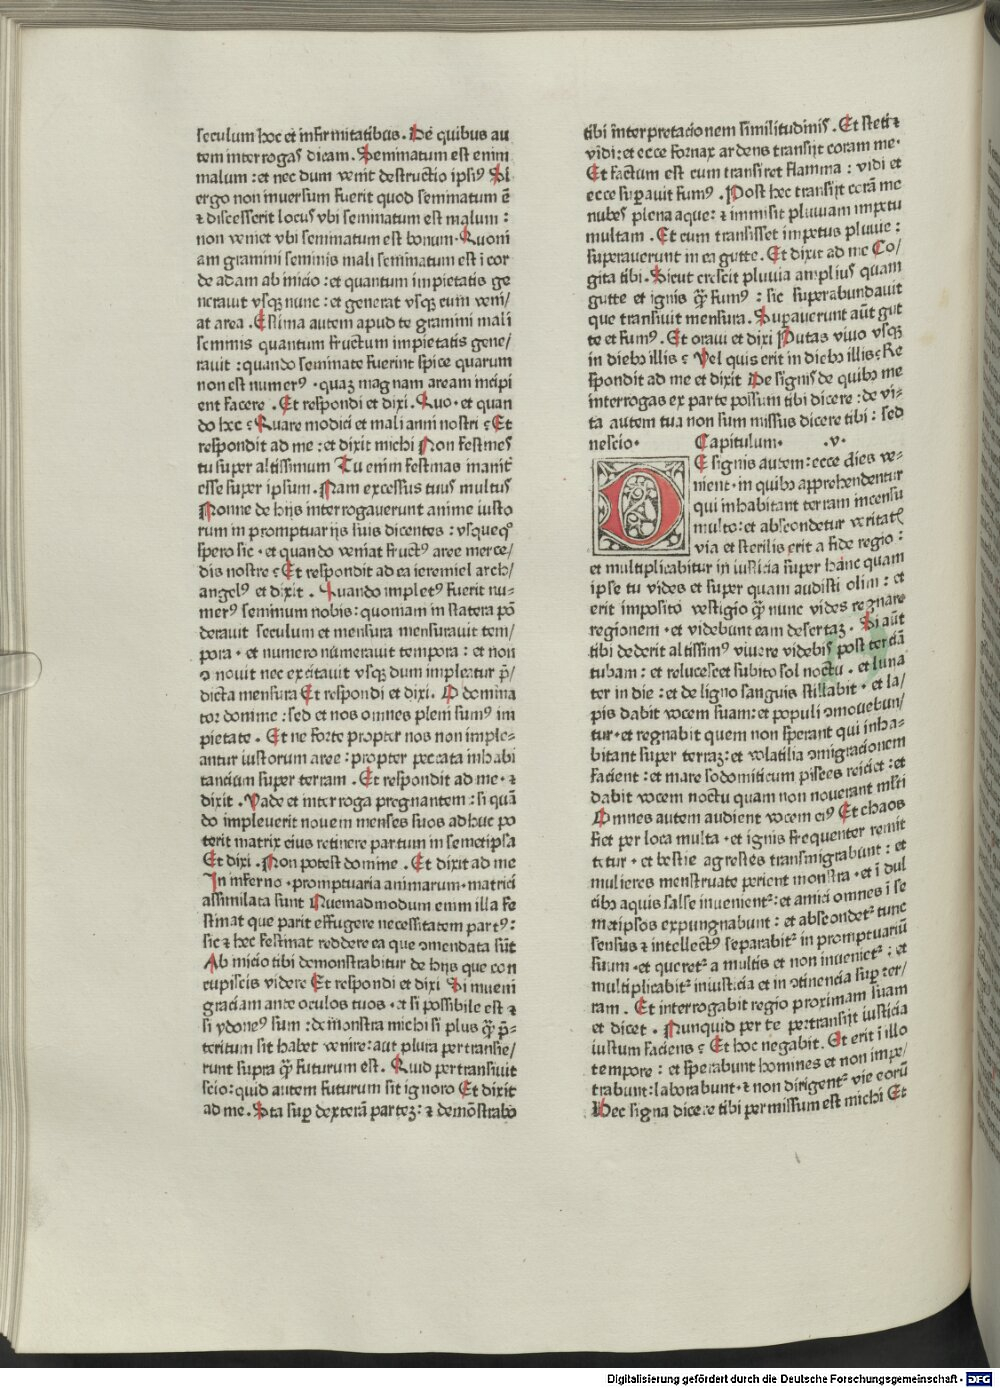 seculum hoc et infirmitatibus. De quibus au
tem interrogas dicam. Seminatum est enim
malum: et nec dum venit destructio ipsiꝰ Si
ergo non inuersum fuerit quod seminatum ē
⁊ discesserit locus vbi seminatum est malum:
non veniet vbi seminatum est bonum. Quoni
am gramini seminis mali seminatum est ī cor
de adam ab inicio: et quantum impietatis ge
nerauit vsqꝫ nunc: et generat vsqꝫ cum veni/
at area. Estima autem apud te gramini mali
seminis quantum fructum impietatis gene/
rauit: quando seminate fuerint spice quarum
non est numerꝰ. quaꝫ magnam aream incipi
ent facere. Et respondi et dixi. Quo. et quan
do hec? Quare modici et mali anni nostri? Et
respondit ad me: et dixit michi Non festines
tu super altissimum Tu enim festinas manit̄
esse super ipsum. Nam excessus tuus multus
Nonne de hijs interrogauerunt anime iusto
rum in promptuarijs suis dicentes: vsquequo
spero sic. et quando veniat fructꝰ aree merce/
dis nostre? Et respondit ad ea ieremiel arch/
angelꝰ et dixit. Quando impletꝰ fuerit nu-
merꝰ seminum nobis: quoniam in statera pō
derauit seculum et mensura mensurauit tem/
pora. et numero numerauit tempora: et non
ↄmouit nec excitauit vsqꝫ dum impleatur p̄/
dicta mensura Et respondi et dixi. O domina
tor domine: sed et nos omnes pleni sumꝰ im
pietate. Et ne forte propter nos non imple-
antur iustorum aree: propter peccata inhabi
tancium super terram. Et respondit ad me. ⁊
dixit. Vade et interroga pregnantem: si quā
do impleuerit nouem menses suos adhuc po
terit matrix eius retinere partum in semetipsa
Et dixi. Non potest domine. Et dixit ad me
In inferno. promptuaria animarum. matrici
assimilata sunt Quemadmodum enim illa fe
stinat que parit effugere necessitatem partꝰ:
sic ⁊ hec festinat reddere ea que ↄmendata sūt
Ab inicio tibi demonstrabitur de hijs que con
cupiscis videre Et respondi et dixi Si inueni
graciam ante oculos tuos. et si possibile est ⁊
si ydoneꝰ sum: demonstra michi si plus ꝙ̄ p̄-
teritum sit habet venire: aut plura pertransie/
runt supra ꝙ̄ futurum est. Quid pertransiuit
scio: quid autem futurum sit ignoro Et dixit
ad me. Sta suꝑ dexterā parteꝫ: ⁊ demōstrabo
tibi interpretacionem similitudinis. Et steti ⁊
vidi: et ecce fornax ardens transijt coram me.
Et factum est cum transiret flamma: vidi et
ecce suꝑauit fumꝰ. Post hec transijt corā me
nubes plena aque: ⁊ immisit pluuiam impetu
multam. Et cum transisset impetus pluuie:
superauerunt in ea gutte. Et dixit ad me Co/
gita tibi. Sicut crescit pluuia amplius quam
gutte et ignis ꝙ̄ fumꝰ: sic superabundauit
que transiuit mensura. Suꝑauerunt aūt gut
te et fumꝰ. Et oraui et dixi Putas viuo vsqꝫ
in diebꝰ illis? Vel quis erit in diebꝰ illis? Re
spondit ad me et dixit De signis de quibꝰ me
interrogas ex parte possum tibi dicere: de vi-
ta autem tua non sum missus dicere tibi: sed
nescio. Capitulum. .v.
DE signis autem: ecce dies ve-
nient. in quibꝰ apprehendentur
qui inhabitant terram in censu
multo: et abscondetur veritatꝭ
via et sterilis erit a fide regio:
et multiplicabitur in iusticia super hanc quam
ipse tu vides et super quam audisti olim: et
erit imposito vestigio ꝙ̄ nunc vides regnare
regionem. et videbunt eam desertaꝫ. Si aūt
tibi dederit altissimꝰ viuere videbis post terciā
tubam: et relucescet subito sol noctu. et luna
ter in die: et de ligno sanguis stillabit. et la/
pis dabit vocem suam: et populi ↄmouebun/
tur. et regnabit quem non sperant qui inha-
bitant super terraꝫ: et volatilia ↄmigracionem
facient: et mare sodomiticum pisces reiciet: et
dabit vocem noctu quam non nouerant ml̄ti
Omnes autem audient vocem eiꝰ Et chaos
fiet per loca multa. et ignis frequenter remit
titur. et bestie agrestes transmigrabunt: et
mulieres menstruate parient monstra. et ī dul
cibꝰ aquis salse inuenientᷣ: et amici omnes ī se
metipsos expugnabunt: et abscondetᷣ tunc
sensus ⁊ intellectꝰ separabitᷣ in promptuariū
suum. et queretᷣ a multis et non inuenietᷣ: et
multiplicabitᷣ iniusticia et in ↄtinencia suꝑ ter/
ram. Et interrogabit regio proximam suam
et dicet. Nunquid per te pertransijt iusticia
iustum faciens? Et hoc negabit. Et erit ī illo
tempore: et sperabunt homines et non impe/
trabunt: laborabunt. ⁊ non dirigentᷣ vie eorū
Hec signa dicere tibi permissum est michi Et
Digitalisierung gefördert durch die Deutsche Forschungsgemeinschaft - DFG